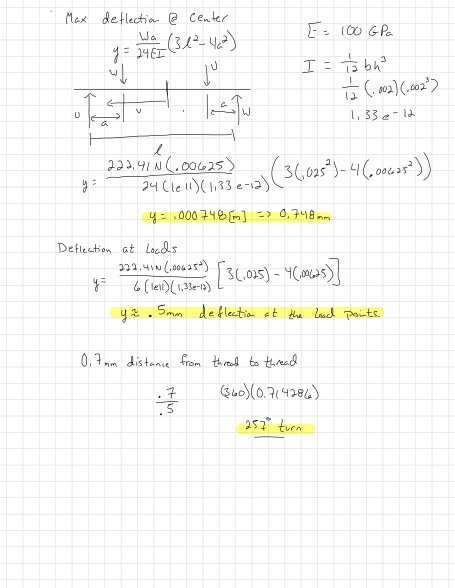 Max deflection @ Center
y = Wa/24EI (3l² - 4a²)
E = 100 GPa
I = 1/12 bh³
1/12 (.002)(.002³)
1.33 e-12
W
a
l
y = 222.41N(.00625)/24(1e11)(1.33 e-12) (3(.025²) - 4(.00625²))
y = .000748[m] => 0.748mm
Deflection at loads
y = 222.41N(.00625²)/6(1e11)(1.33e-12) [3(.025) - 4(.00625)]
y ≈ .5mm deflection at the load points
0.7mm distance from thread to thread
.7/.5
(360)(0.714286)
257° turn